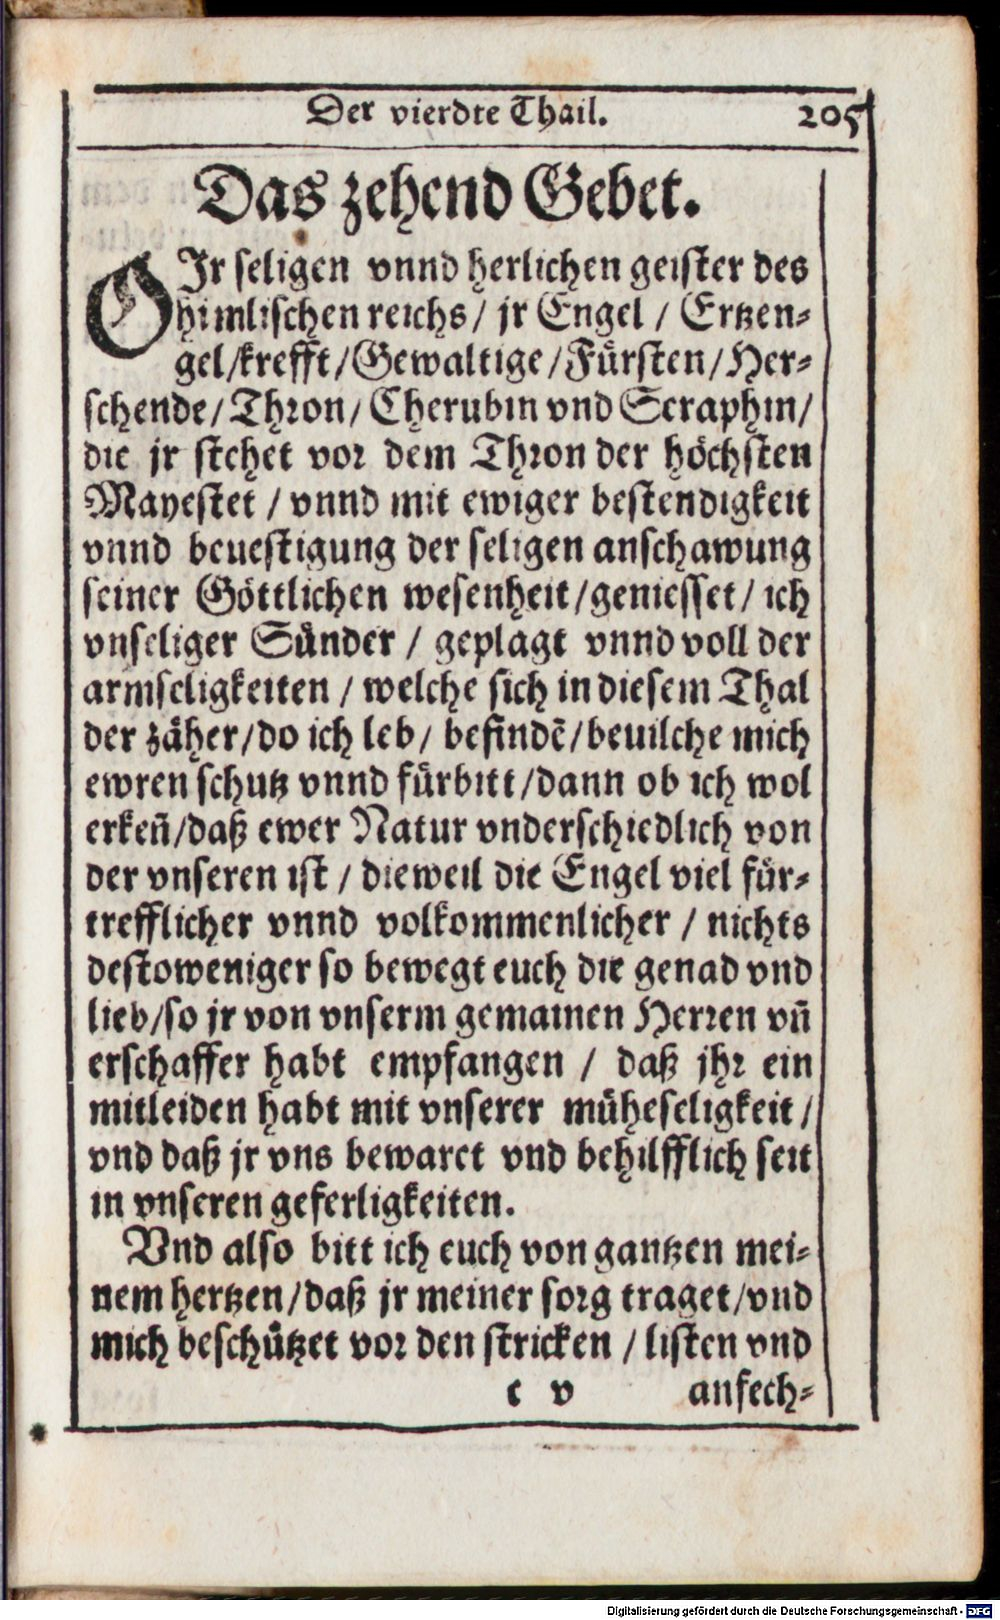 Der vierdte Thail. 205
Das zehend Gebet.
OJr seligen vnnd herlichen geister des
himlischen reichs/ jr Engel / Ertzen-
gel/krefft/Gewaltige/Fürsten/Her-
schende/Thron/Cherubin vnd Seraphin/
die jr stehet vor dem Thron der höchsten
Mayestet / vnnd mit ewiger bestendigkeit
vnnd beuestigung der seligen anschawung
seiner Göttlichen wesenheit/geniesset/ ich
vnseliger Sünder / geplagt vnnd voll der
armseligkeiten / welche sich in diesem Thal
der zäher/do ich leb/ befindē/beuilche mich
ewren schutz vnnd fürbitt/dann ob ich wol
erken̄/daß ewer Natur vnderschiedlich von
der vnseren ist / dieweil die Engel viel für-
trefflicher vnnd volkommenlicher / nichts
destoweniger so bewegt euch die genad vnd
lieb/so jr von vnserm gemainen Herren vn̄
erschaffer habt empfangen / daß jhr ein
mitleiden habt mit vnserer müheseligkeit/
vnd daß jr vns bewaret vnd behilfflich seit
in vnseren geferligkeiten.
Vnd also bitt ich euch von gantzen mei-
nem hertzen/daß jr meiner sorg traget/vnd
mich beschützet vor den stricken / listen vnd
c v anfech-
Digitalisierung gefördert durch die Deutsche Forschungsgemeinschaft - DFG